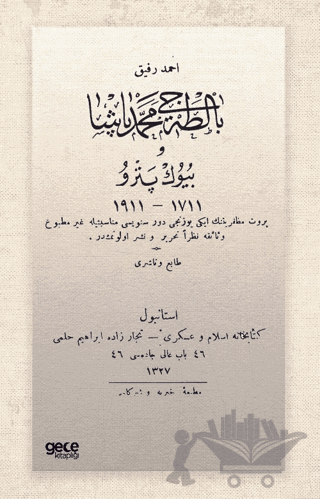 احمد رفيق
بالطه جی محمد پاشا
و
بیوك پترو
١٧١١ — ١٩١١
پروت مظفریتنك ایکی یوزنجی دور سنویسی مناسبتیله غیر مطبوع
وثائقه نظراً تحریر و نشر اولونمشدر .
طابع وناشری
استانبول
کتابخانهٔ اسلام و عسکری — تجار زاده ابراهیم حلمی
٤٦ باب عالی جاده‌سی ٤٦
١٣٢٧
مطبعهٔ خیریه و شرکاسی
gece
kitaplığı